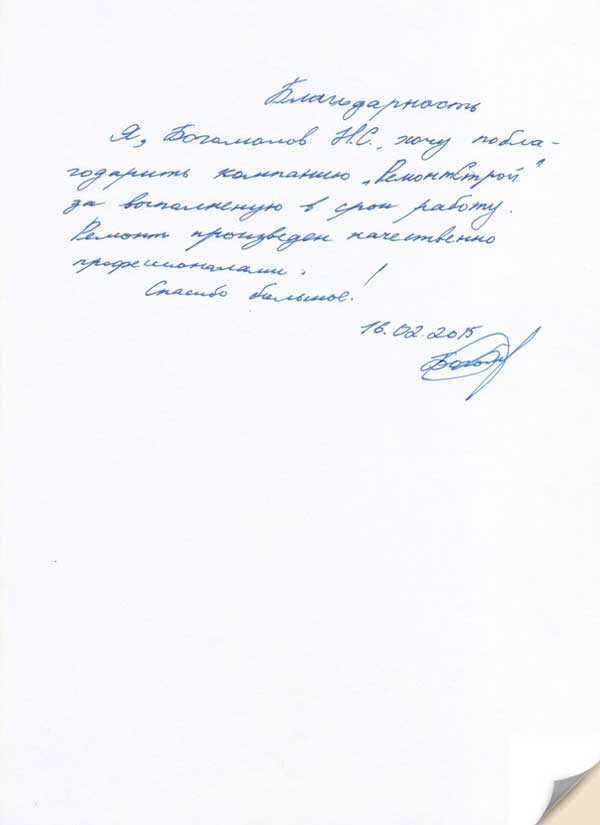 Благодарность
Я, Богомолов Н.С., хочу побла-
годарить компанию „РемонтСтрой"
за выполненую в срок работу.
Ремонт произведен качественно
профессионалами.
Спасибо большое!
16.02.2015